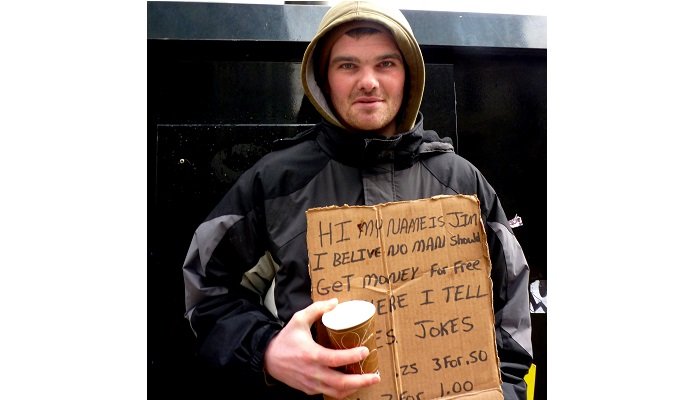 HI MY NAME IS JIM
I BELIVE NO MAN Should
GeT MONEY For Free
I TELL
JOKES
.25 3 For .50
For 1.00